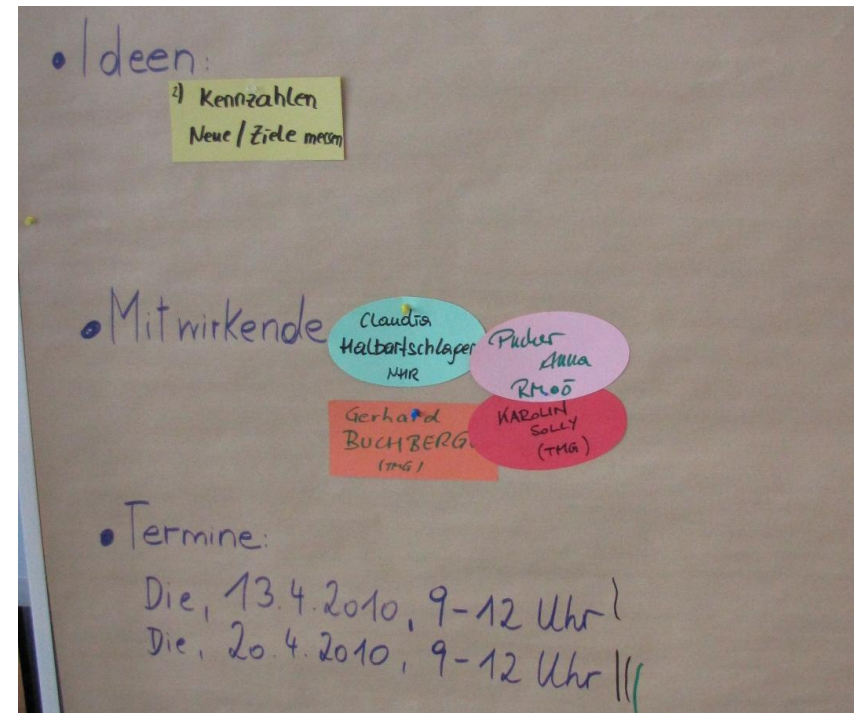 • Ideen:
2) Kennzahlen
Neue / Ziele messen
• Mitwirkende
Claudia
Halbartschlager
NHR
Pucher
Anna
RMOÖ
Gerhard
BUCHBERG
(TMG)
KAROLIN
SOLLY
(TMG)
• Termine:
Die, 13.4.2010, 9-12 Uhr |
Die, 20.4.2010, 9-12 Uhr |||